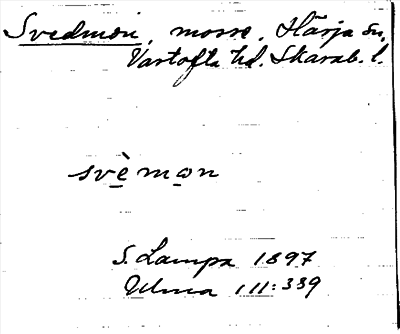 Svedmon, mosse, Härja sn,
Vartofta hd. Skarab. l.
svèmon
S. Lampa 1897
Ulma 111:339